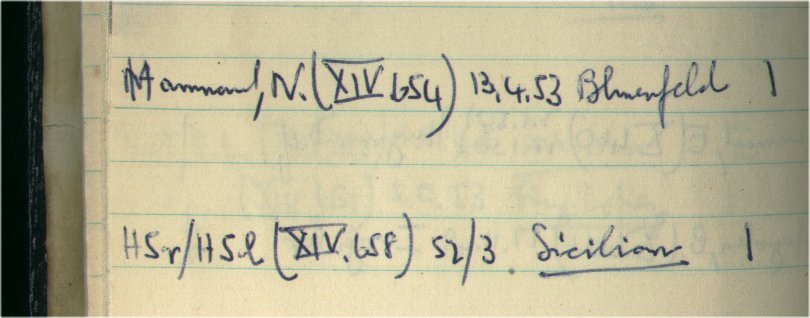 Hammond, N. (XIV.654) 13.4.53 Blumenfeld 1
HSr/HSl (XIV.658) 52/3. Sicilian 1